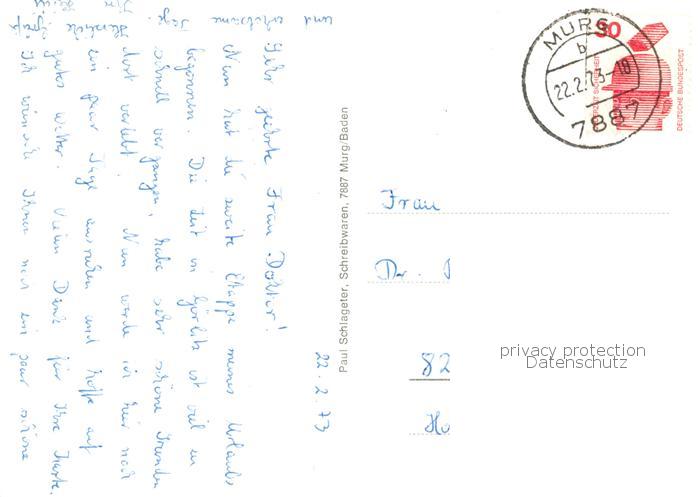 22.2.73
Sehr geehrte Frau Doktor!
Nun hat die zweite Etappe meines Urlaubs
begonnen. Die Zeit in Görlitz ist viel zu
schnell vergangen, habe sehr schöne Stunden
dort verlebt. Nun werde ich hier noch
ein paar Tage ausruhen und hoffe auf
gutes Wetter. Vielen Dank für Ihre Karte.
Ich wünsche Ihnen noch ein paar schöne
und erholsame Tage.
Herzliche Grüße
Ihre
Paul Schlageter, Schreibwaren, 7887 Murg/Baden
MURG
b
22.2.73-18
7887
DEUTSCHE BUNDESPOST
Frau
Dr.
82
Ho
privacy protection
Datenschutz